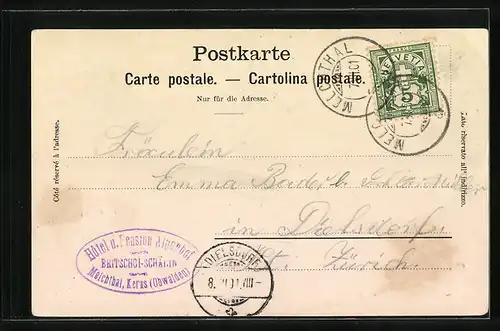 Postkarte
Carte postale. — Cartolina postale.
Nur für die Adresse.
Côté réservé à l'adresse.
Lato riservato all'indirizzo.
HELVETIA
FRANCO
5
MELCHTHAL
MELCHTHAL
Fräulein
Emma
in Dielsdorf
Kt. Zürich
Hôtel u. Pension Alpenhof
BRITSCHGI-SCHÄLIN
Melchthal, Kerns (Obwalden)
DIELSDORF